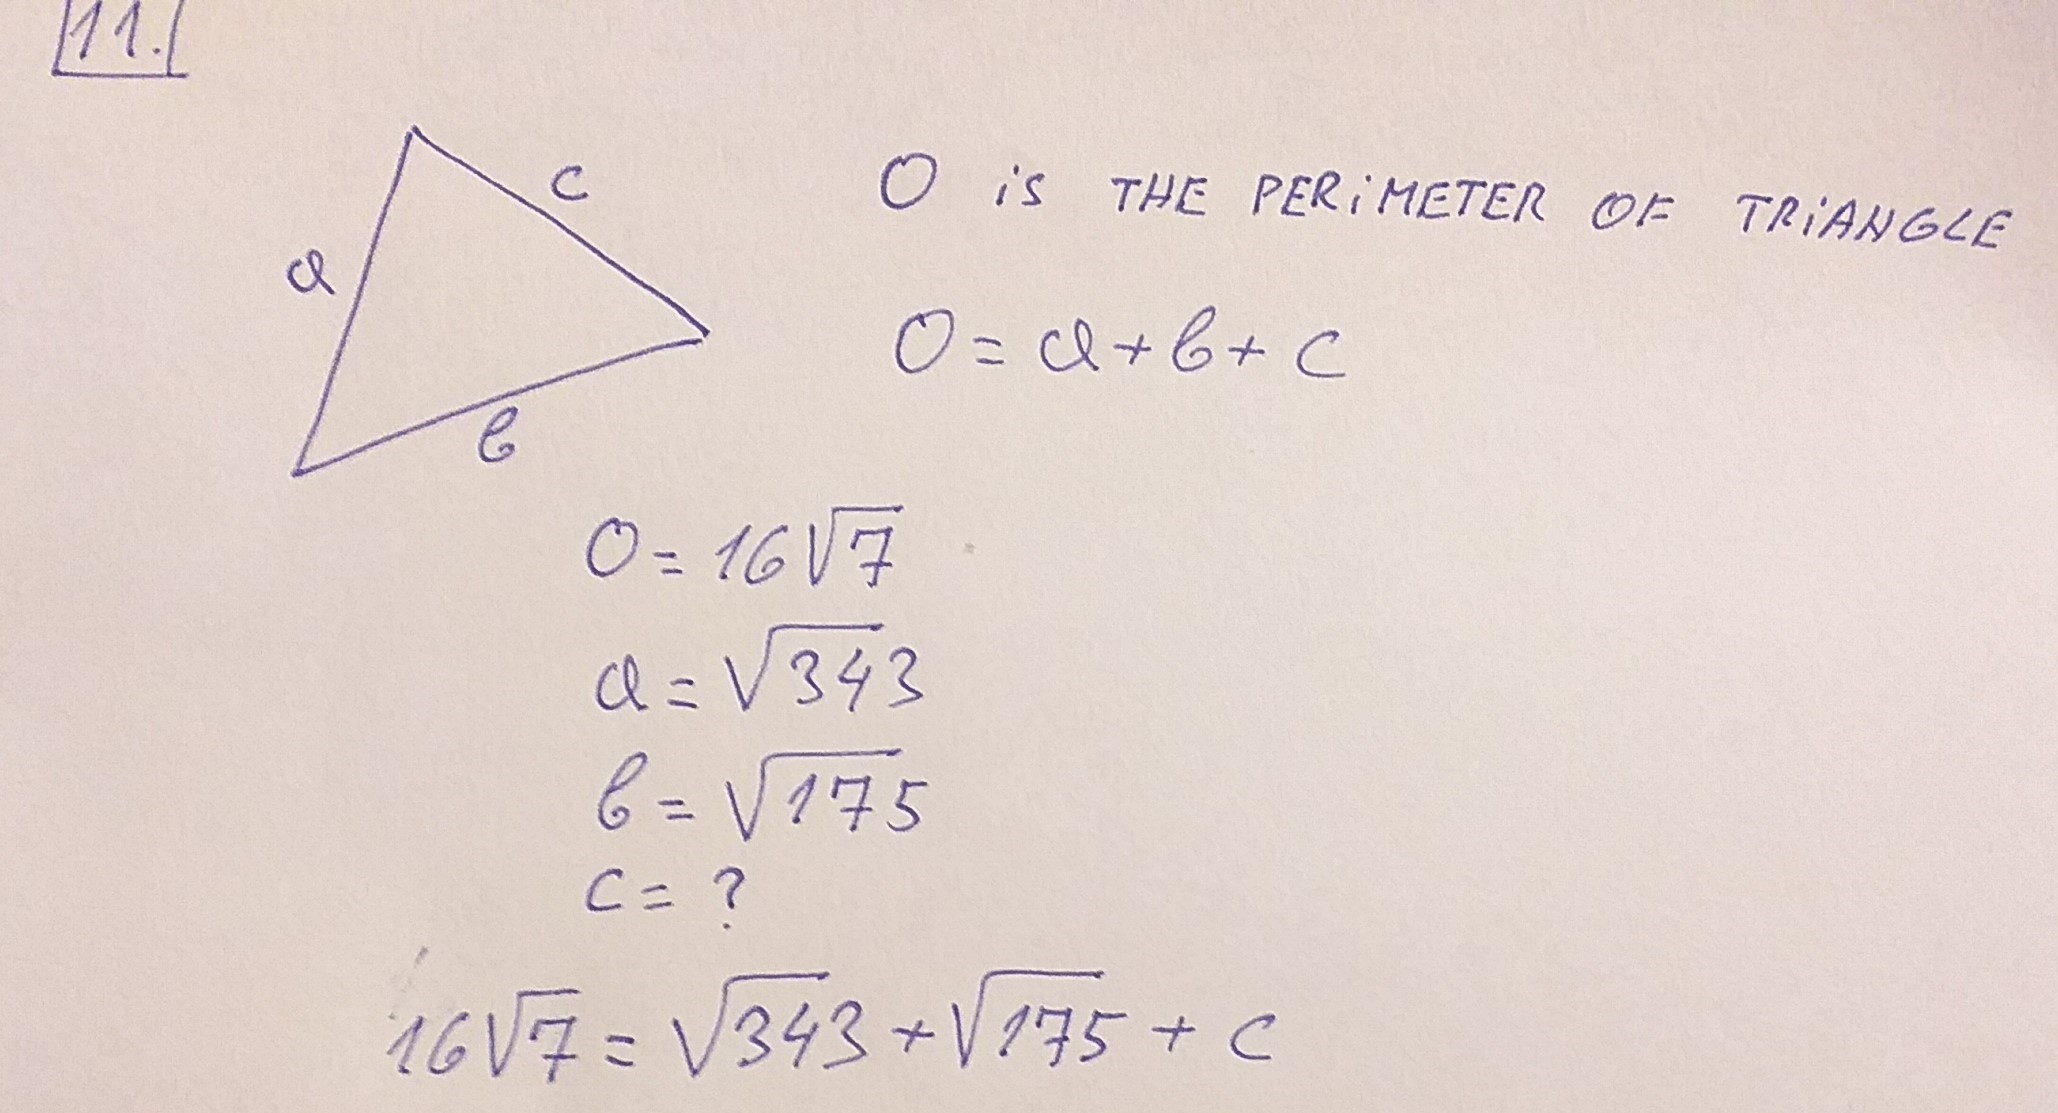 11.
c
a
b
O is THE PERiMETER OF TRiANGLE
O = a + b + c
O = 16√7
a = √343
b = √175
c = ?
16√7 = √343 + √175 + c